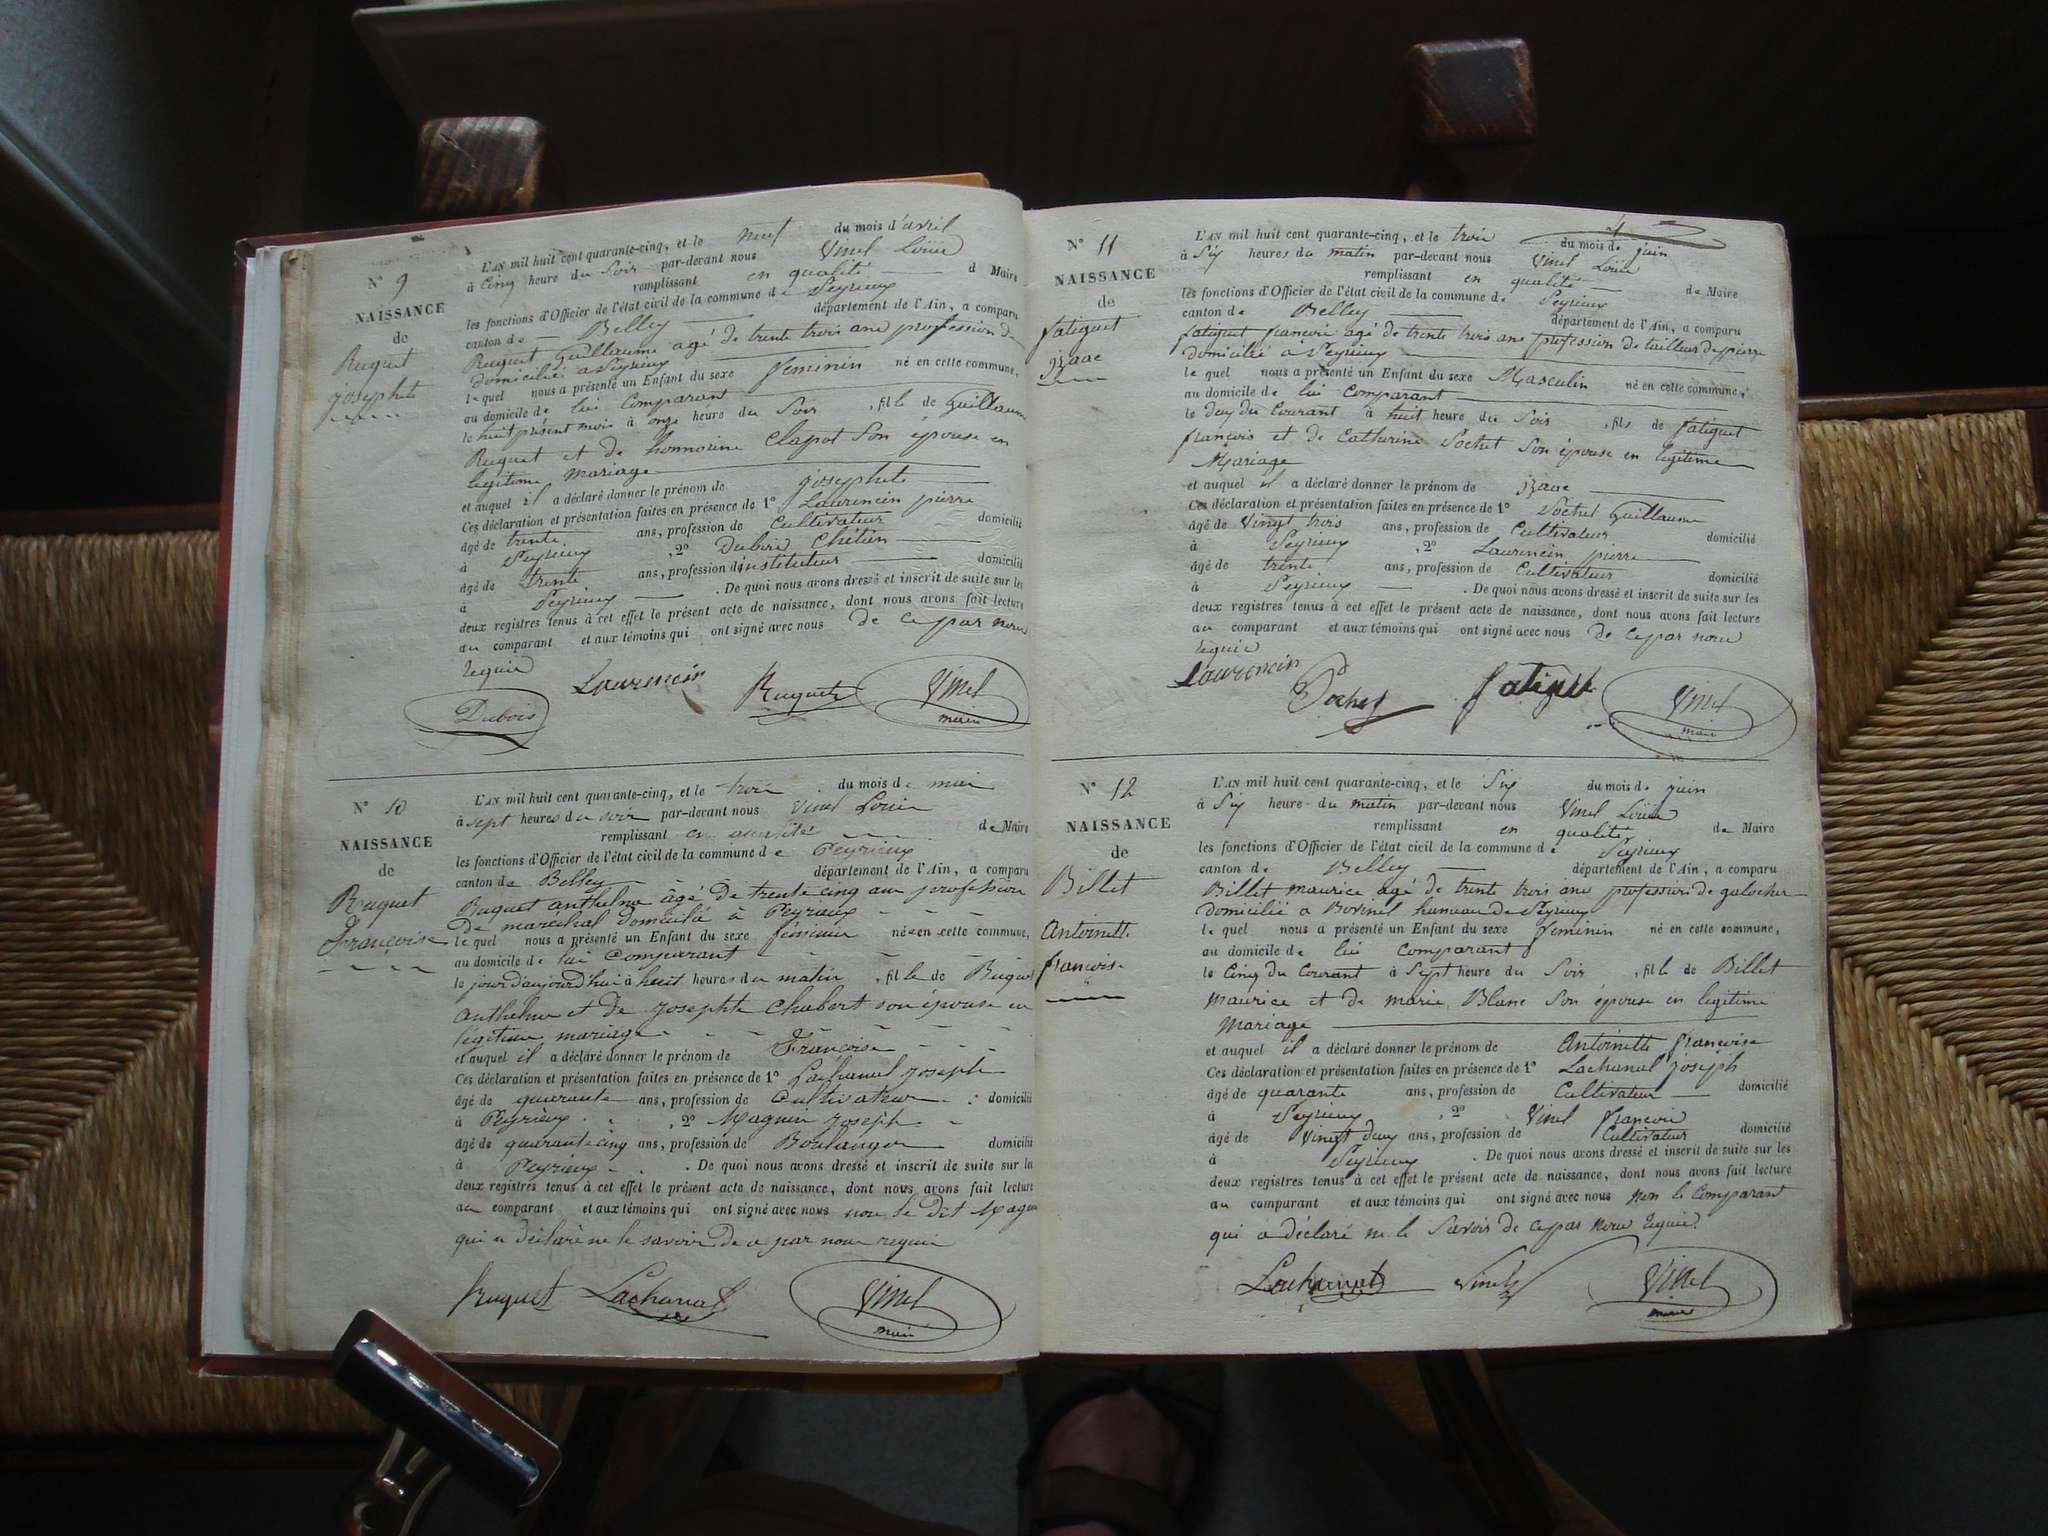 N° 9
NAISSANCE
de
Ruguet
josephte
L'AN mil huit cent quarante-cinq, et le neuf du mois d'avril
à Cinq heure du Soir par-devant nous Vinel Loüis
remplissant en qualité d Maire
les fonctions d'Officier de l'état civil de la commune de Peyrieux
canton de Belley département de l'Ain, a comparu
Ruguet Guillaume agé de trente trois ans profession de
domicilié a Peyrieux
lequel nous a présenté un Enfant du sexe feminin né en cette commune,
au domicile de lui Comparant
le huit présent mois à onze heure du Soir , fille de Guillaume
Ruguet et de honnorine Clapot Son épouse en
legitime mariage
et auquel il a déclaré donner le prénom de josephte
Ces déclaration et présentation faites en présence de 1° Laurencin pierre
âgé de trente ans, profession de Cultivateur domicilié
à Peyrieux , 2° Dubois
âgé de trente ans, profession d'instituteur domicilié
à Peyrieux . De quoi nous avons dressé et inscrit de suite sur les
deux registres tenus à cet effet le présent acte de naissance, dont nous avons fait lecture
au comparant et aux témoins qui ont signé avec nous de ce par nous
requis
Laurencin Ruguet Vinel
maire
Dubois
N° 10
NAISSANCE
de
Ruguet
Françoise
L'AN mil huit cent quarante-cinq, et le trois du mois de mai
à sept heures du soir par-devant nous Vinel Louis
remplissant en qualité de Maire
les fonctions d'Officier de l'état civil de la commune de Peyrieux
canton de Belley département de l'Ain, a comparu
Ruguet anthelme âgé de trente cinq ans profession
de maréchal domicilié à Peyrieux
lequel nous a présenté un Enfant du sexe féminin née en cette commune,
au domicile de lui comparant
le jour d'aujourd'hui à huit heures du matin , fille de Ruguet
anthelme et de josephte Chabert son épouse en
légitime mariage
et auquel il a déclaré donner le prénom de Françoise
Ces déclaration et présentation faites en présence de 1° Lachanal joseph
âgé de quarante ans, profession de Cultivateur domicilié
à Peyrieux , 2° Magnin joseph
âgé de quarante cinq ans, profession de Boulanger domicilié
à Peyrieux . De quoi nous avons dressé et inscrit de suite sur les
deux registres tenus à cet effet le présent acte de naissance, dont nous avons fait lecture
au comparant et aux témoins qui ont signé avec nous non le dit Magnin
qui a déclaré ne le savoir de ce par nous requis
Ruguet Lachanal Vinel
maire
4
N° 11
NAISSANCE
de
fatiguet
jzaac
L'AN mil huit cent quarante-cinq, et le trois du mois de juin
à Six heures du matin par-devant nous Vinel Loüis
remplissant en qualité de Maire
les fonctions d'Officier de l'état civil de la commune de Peyrieux
canton de Belley département de l'Ain, a comparu
fatiguet francois agé de trente trois ans profession de tailleur de pierre
domicilié a Peyrieux
lequel nous a présenté un Enfant du sexe Masculin né en cette commune,
au domicile de lui comparant
le deux du Courant à huit heure du Soir , fils de fatiguet
françois et de Catherine Pochet Son épouse en legitime
Mariage
et auquel il a déclaré donner le prénom de jzaac
Ces déclaration et présentation faites en présence de 1° Pochet Guillaume
âgé de Vingt trois ans, profession de Cultivateur domicilié
à Peyrieux , 2° Laurencin pierre
âgé de trente ans, profession de Cultivateur domicilié
à Peyrieux . De quoi nous avons dressé et inscrit de suite sur les
deux registres tenus à cet effet le présent acte de naissance, dont nous avons fait lecture
au comparant et aux témoins qui ont signé avec nous de ce par nous
requis
Laurencin Pochet fatiguet Vinel
maire
N° 12
NAISSANCE
de
Billet
Antoinette
francoise
L'AN mil huit cent quarante-cinq, et le Six du mois de juin
à Six heure du matin par-devant nous Vinel Loüis
remplissant en qualité de Maire
les fonctions d'Officier de l'état civil de la commune de Peyrieux
canton de Belley département de l'Ain, a comparu
Billet maurice agé de trente trois ans profession de galocher
domicilié a Bovinel hameau de Peyrieux
lequel nous a présenté un Enfant du sexe feminin né en cette commune,
au domicile de lui comparant
le Cinq du Courant à Sept heure du Soir , fille de Billet
Maurice et de marie Blanc Son épouse en legitime
Mariage
et auquel il a déclaré donner le prénom de Antoinette francoise
Ces déclaration et présentation faites en présence de 1° Lachanal joseph
âgé de quarante ans, profession de Cultivateur domicilié
à Peyrieux , 2° Vinel francois
âgé de Vingt deux ans, profession de Cultivateur domicilié
à Peyrieux . De quoi nous avons dressé et inscrit de suite sur les
deux registres tenus à cet effet le présent acte de naissance, dont nous avons fait lecture
au comparant et aux témoins qui ont signé avec nous non le Comparant
qui a déclaré ne le Savoir de ce par nous requis.
Lachanal Vinel Vinel
maire